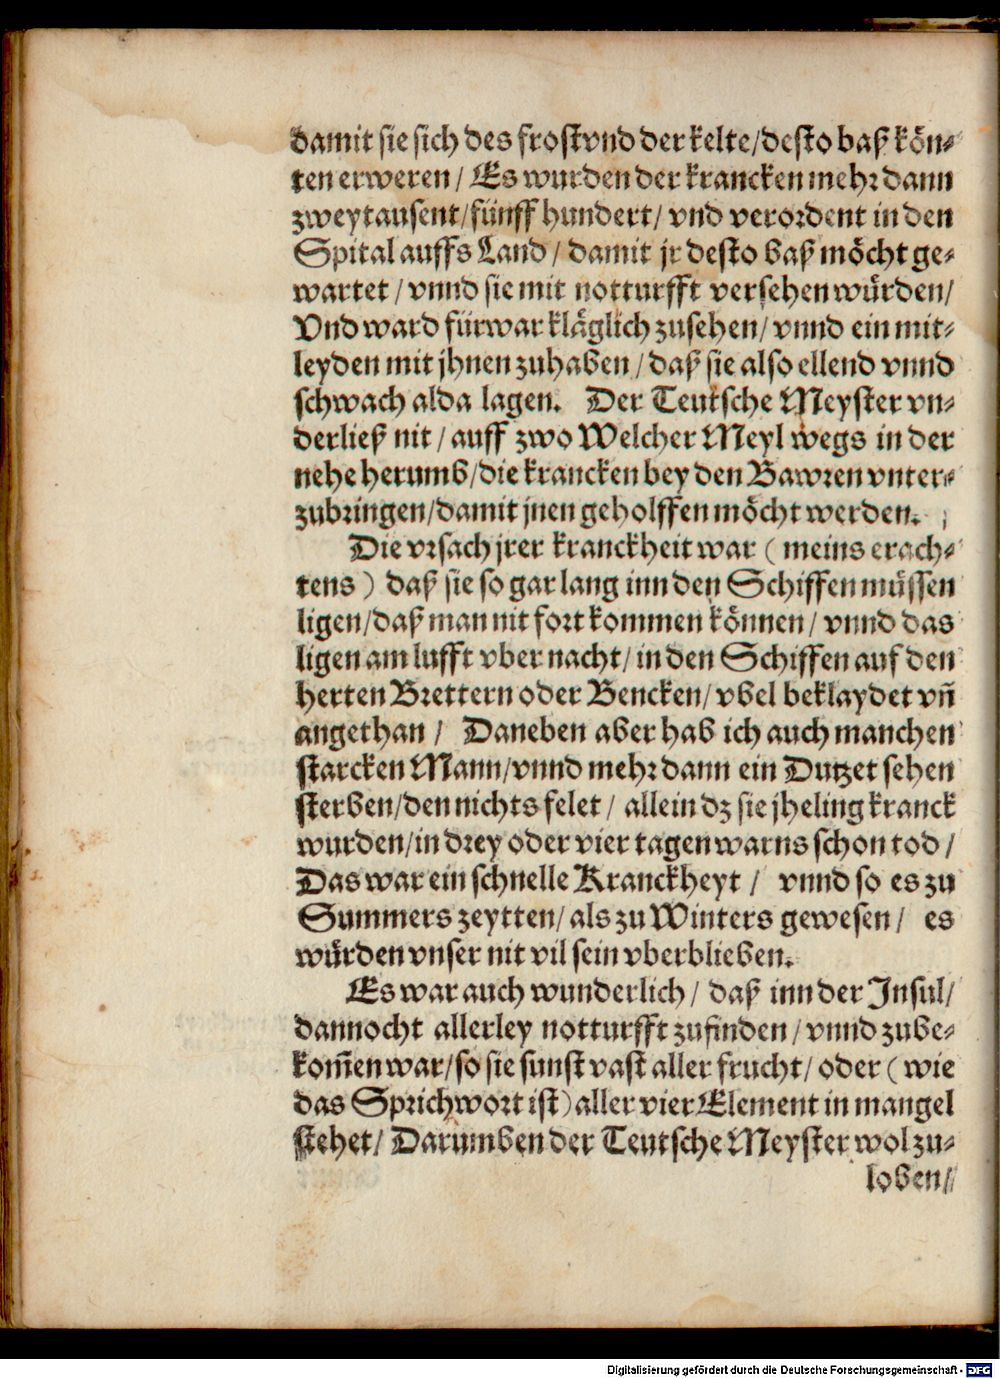 damit sie sich des frost vnd der kelte/desto baß kön⸗
ten erweren / Es wurden der krancken mehr dann
zweytausent/fünff hundert/ vnd verordent in den
Spital auffs Land / damit jr desto baß möcht ge⸗
wartet / vnnd sie mit notturfft versehen würden/
Vnd ward fürwar kläglich zusehen/ vnnd ein mit⸗
leyden mit jhnen zuhaben / daß sie also ellend vnnd
schwach alda lagen. Der Teutsche Meyster vn⸗
derließ nit / auff zwo Welcher Meyl wegs in der
nehe herumb/die krancken bey den Bawren vnter⸗
zubringen/damit jnen geholffen möcht werden.
Die vrsach jrer kranckheit war ( meins erach⸗
tens ) daß sie so gar lang inn den Schiffen müssen
ligen/daß man nit fort kommen können / vnnd das
ligen am lufft vber nacht/ in den Schiffen auf den
herten Brettern oder Bencken/ vbel beklaydet vñ
angethan / Daneben aber hab ich auch manchen
starcken Mann/vnnd mehr dann ein Dutzet sehen
sterben/den nichts felet / allein dz sie jheling kranck
wurden/in drey oder vier tagen warns schon tod /
Das war ein schnelle Kranckheyt / vnnd so es zu
Summers zeytten/ als zu Winters gewesen / es
würden vnser nit vil sein vberblieben.
Es war auch wunderlich / daß inn der Insul/
dannocht allerley notturfft zufinden / vnnd zube⸗
kom̃en war/so sie sunst vast aller frucht/ oder ( wie
das Sprichwort ist) aller vier Element in mangel
stehet/ Darumben der Teutsche Meyster wol zu⸗
loben/
Digitalisierung gefördert durch die Deutsche Forschungsgemeinschaft - DFG